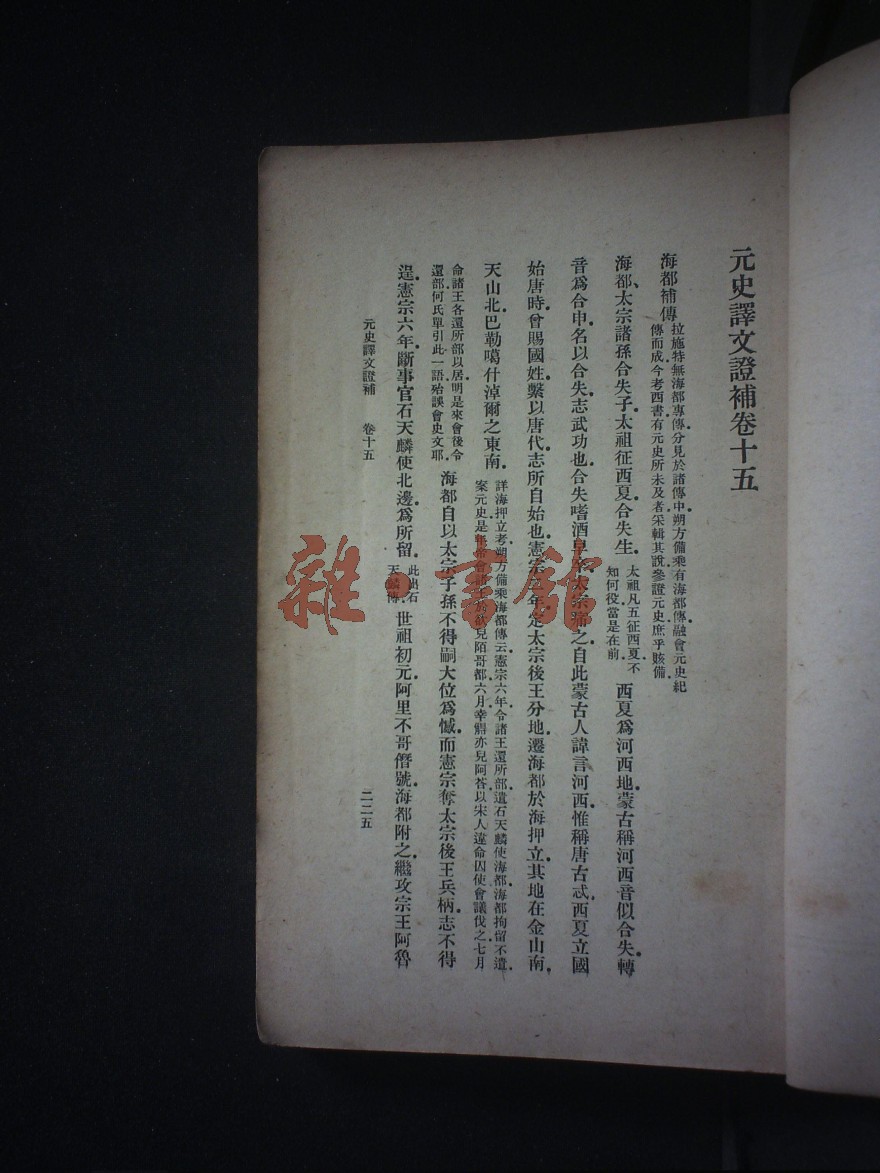 元史譯文證補卷十五
海都補傳 拉施特無海都專傳分見於諸傳中朔方備乘有海都傳融會元史紀
傳而成今考西書有元史所未及者采輯其說參證元史庶乎賅備
海都太宗諸孫合失子太祖征西夏合失生 太祖凡五征西夏不
知何役當是在前 西夏爲河西地蒙古稱河西音似合失轉
音爲合申名以合失志武功也合失嗜酒早卒太宗痛之自此蒙古人諱言河西惟稱唐古忒西夏立國
始唐時曾賜國姓繫以唐代志所自始也憲宗二年定太宗後王分地遷海都於海押立其地在金山南
天山北巴勒噶什淖爾之東南 詳海押立考朔方備乘海都傳云憲宗六年令諸王還所部遣石天麟使海都海都拘留不遣
案元史是年帝會諸王於欲兒陌哥都六月幸鄂亦兒阿荅以宋人違命囚使會議伐之七月
命諸王各還所部以居明是來會後令
還部何氏單引此一語殆誤會史文耶 海都自以太宗子孫不得嗣大位爲憾而憲宗奪太宗後王兵柄志不得
逞憲宗六年斷事官石天麟使北邊爲所留 此出石
天麟傳 世祖初元阿里不哥僭號海都附之繼攻宗王阿魯
元史譯文證補 卷十五 二二五
雜·書館